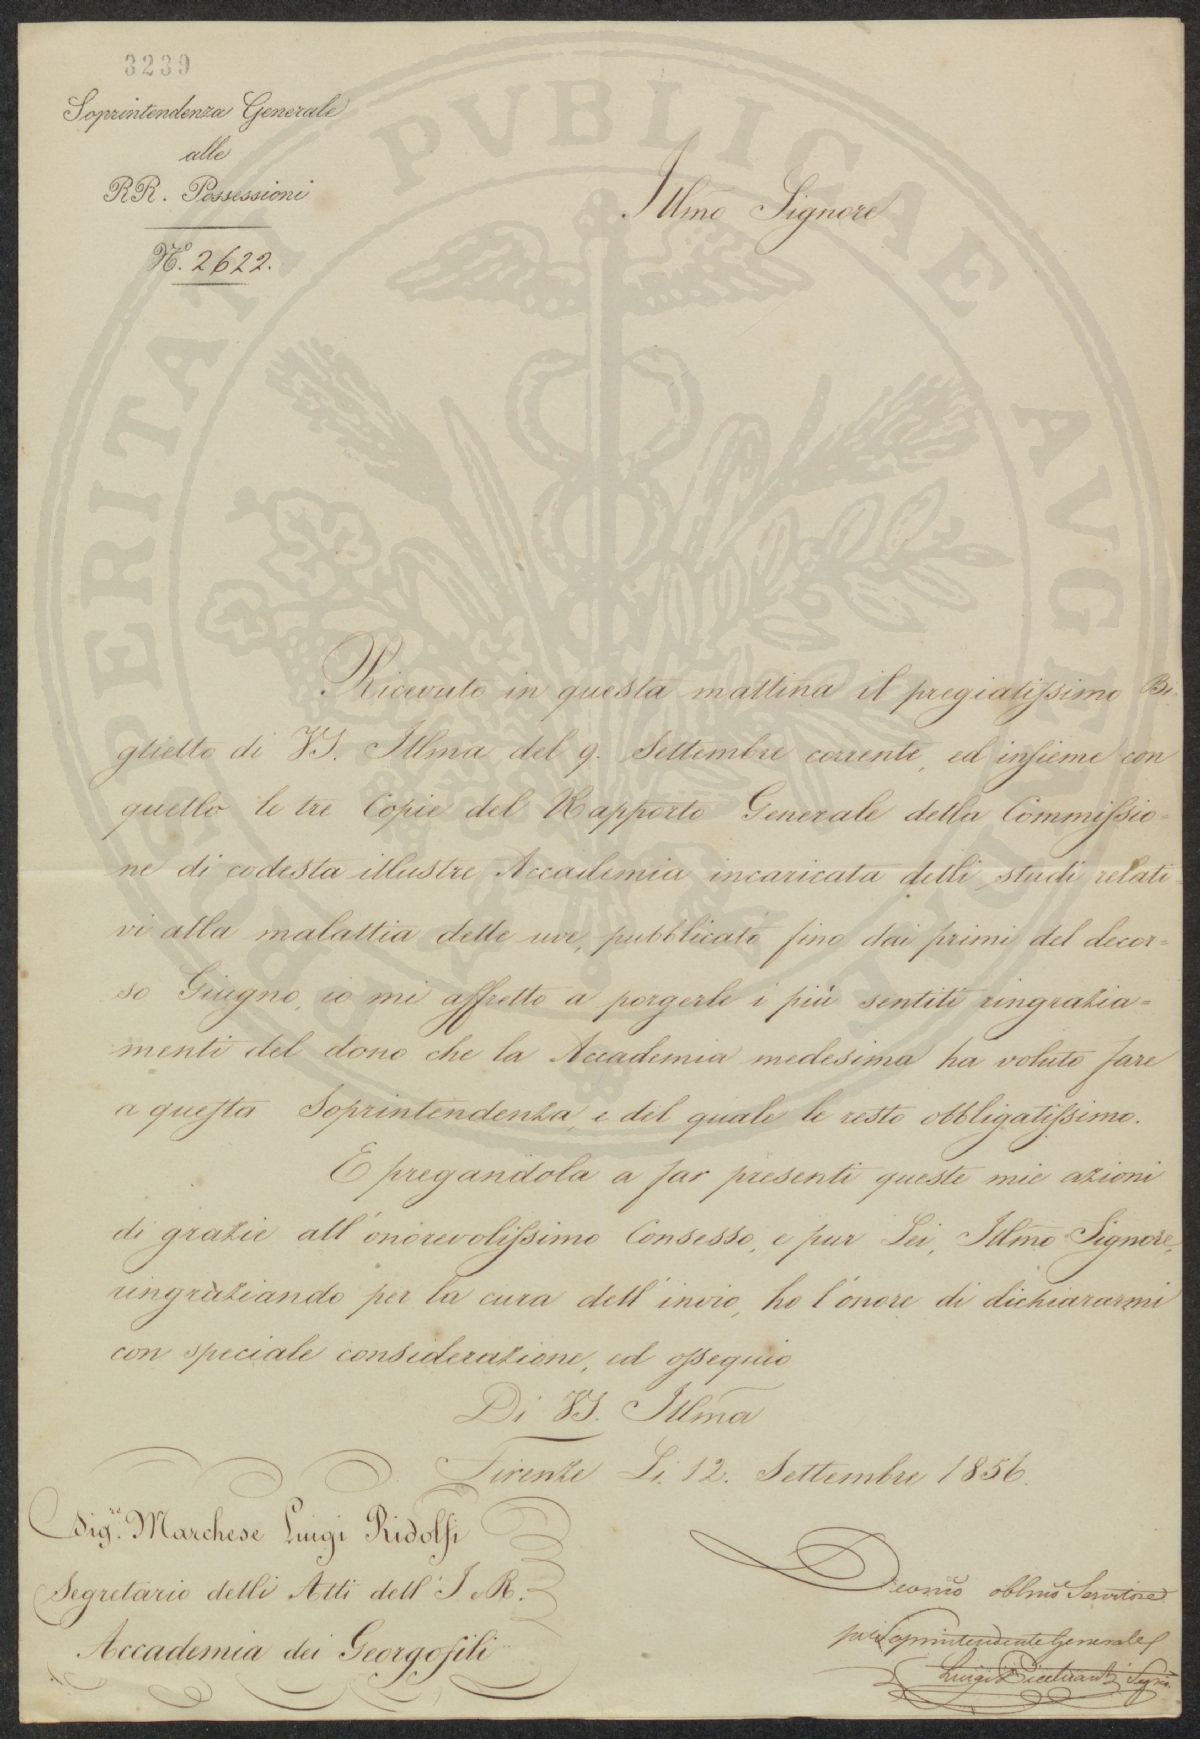 3239
Soprintendenza Generale
alle
RR. Possessioni
N.º 2622.
Illmo Signore
Ricevuto in questa mattina il pregiatissimo Bi-
glietto di VS. Illma del 9. Settembre corrente, ed insieme con
quello le tre Copie del Rapporto Generale della Commissio=
ne di codesta illustre Accademia incaricata delli studi relati
vi alla malattia delle uve, pubblicato fino dai primi del decor=
so Giugno, io mi affretto a porgerle i più sentiti ringrazia=
menti del dono che la Accademia medesima ha voluto fare
a questa Soprintendenza, e del quale le resto obbligatissimo.
E pregandola a far presenti queste mie azioni
di grazie all'onorevolissimo Consesso, e pur Lei, Illmo Signore,
ringraziando per la cura dell'invio, ho l'onore di dichiararmi
con speciale considerazione, ed ossequio
Di VS. Illma
Firenze Li 12. Settembre 1856.
Sig.re Marchese Luigi Ridolfi
Segretario delli Atti dell'I. e R.
Accademia dei Georgofili
Devmo obblmo Servitore
Soprintendente Generale
Luigi
PROSPERITATI PVBLICAE AVGENDAE